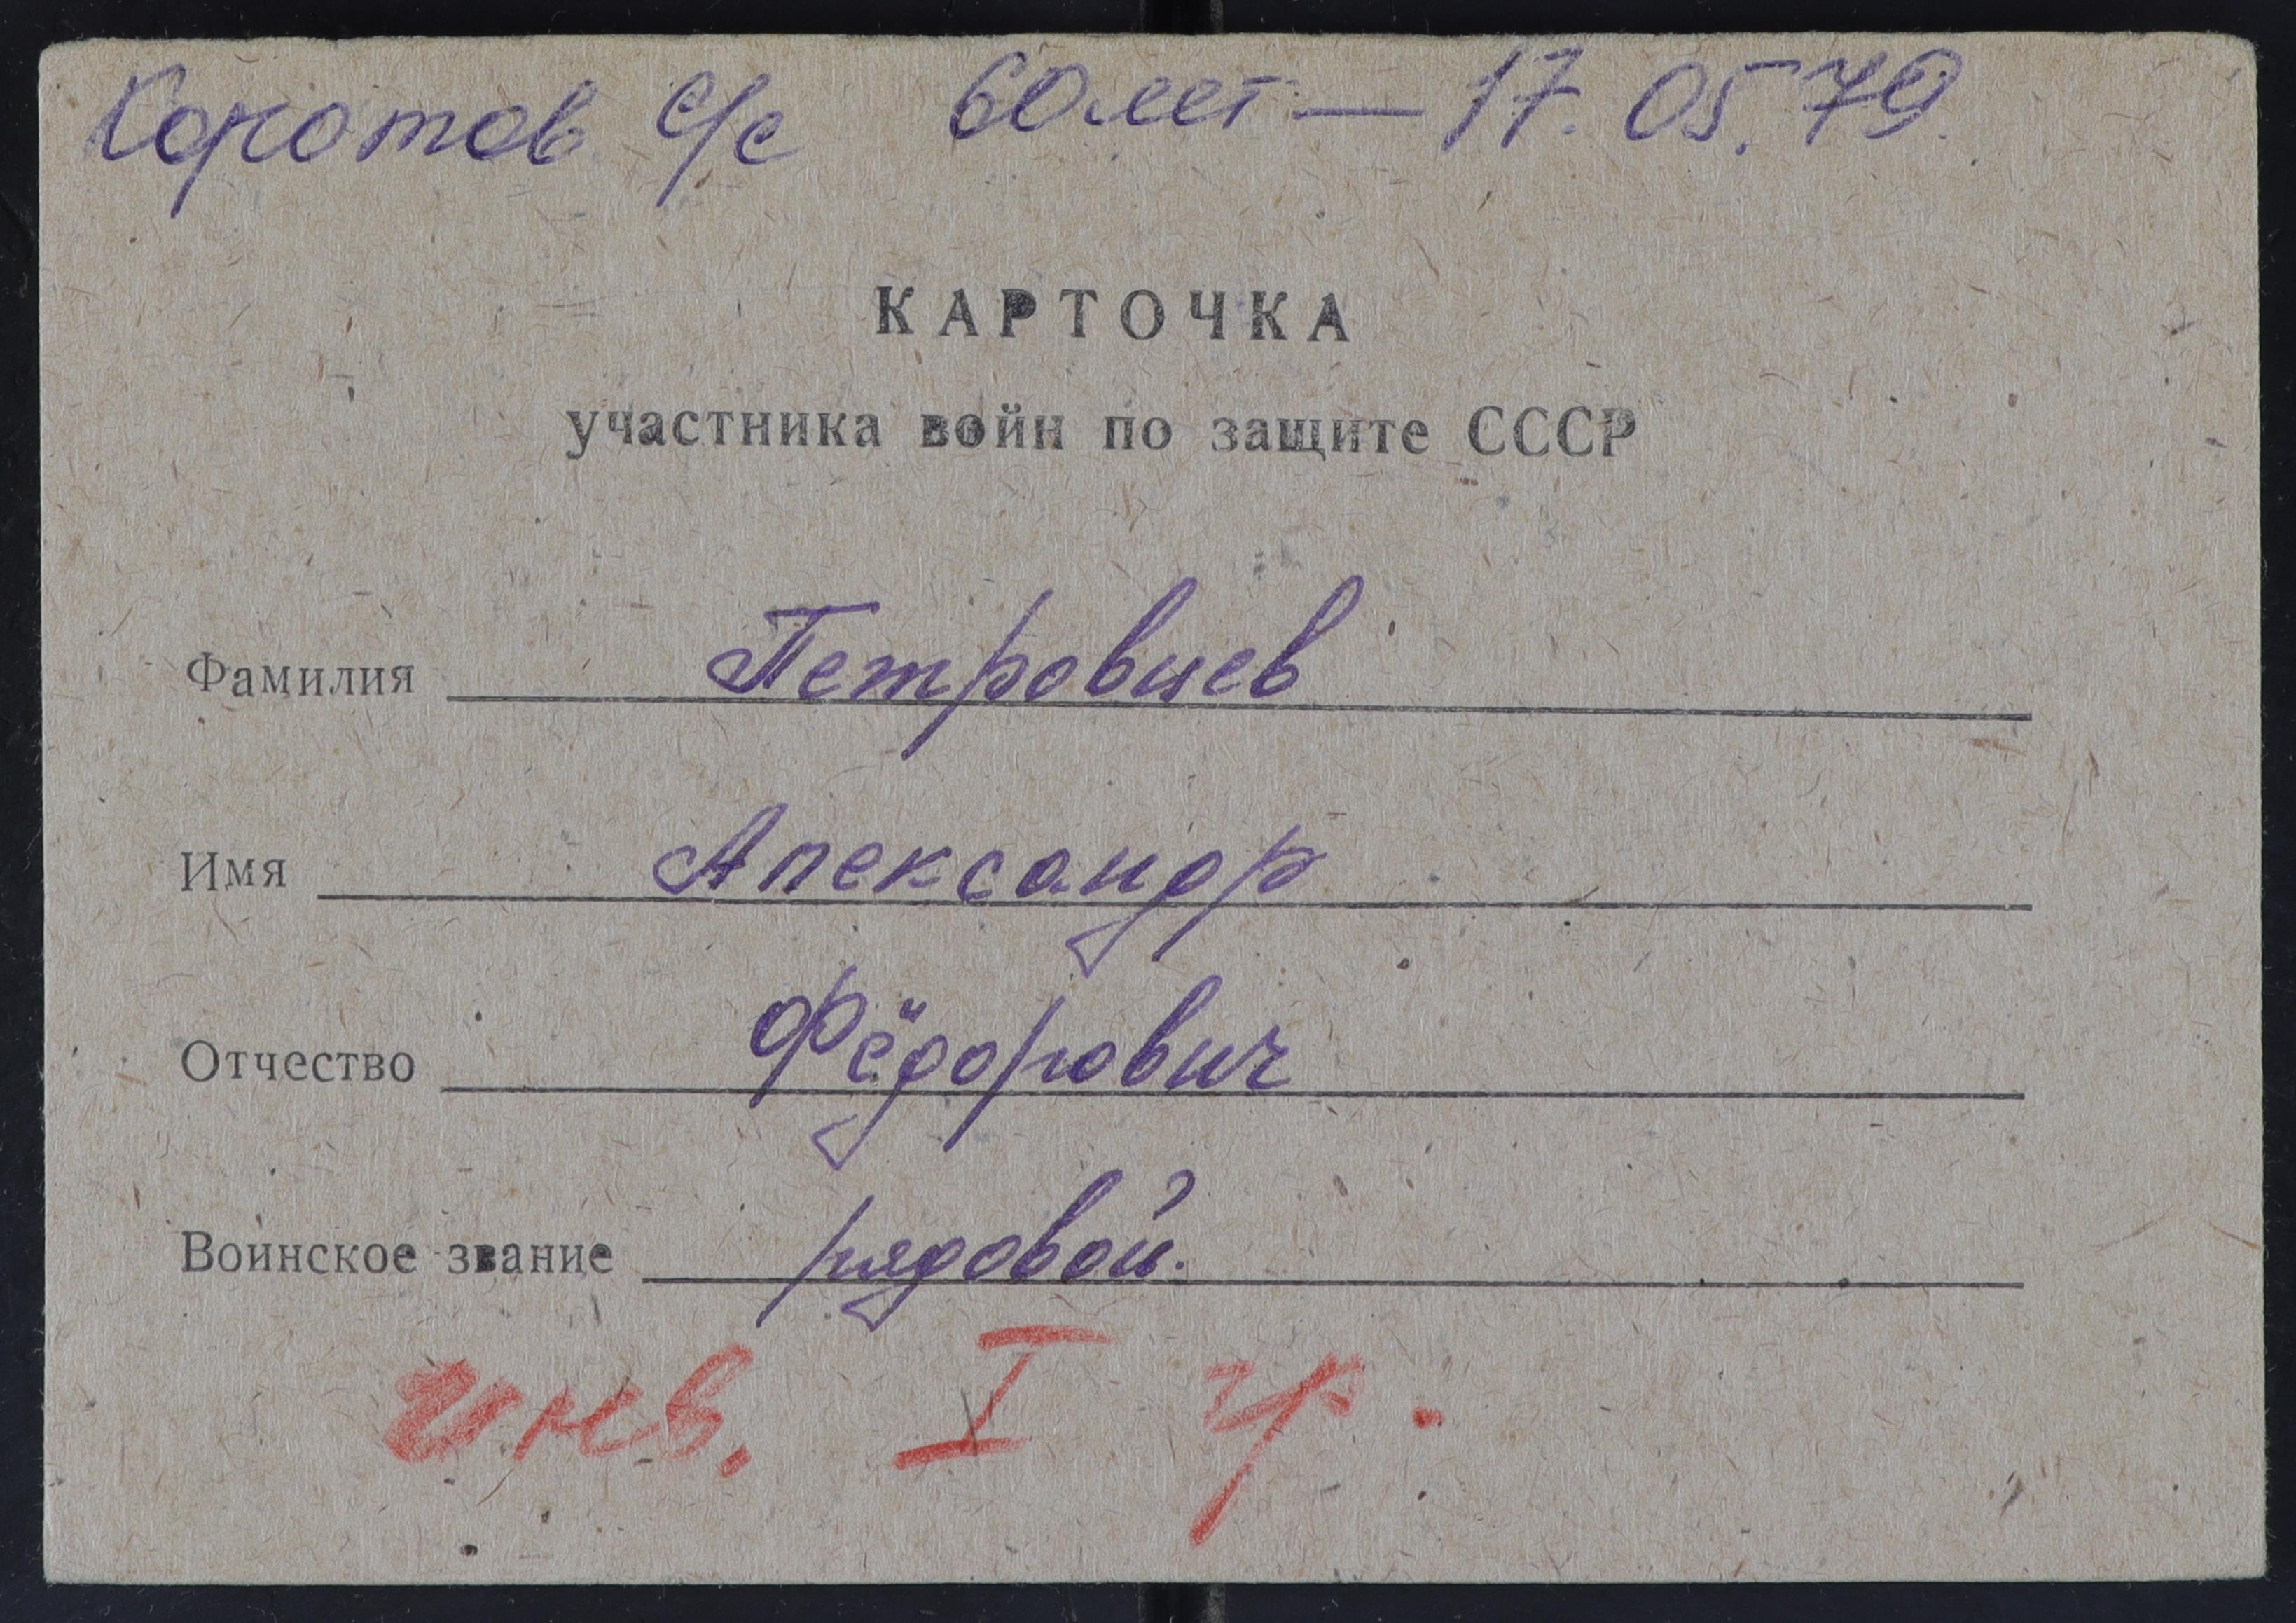 Коротов. с/с 60 лет — 17.05.79.
КАРТОЧКА
участника войн по защите СССР
Фамилия Петровцев
Имя Александр
Отчество Фёдорович
Воинское звание рядовой.
инв. I гр.